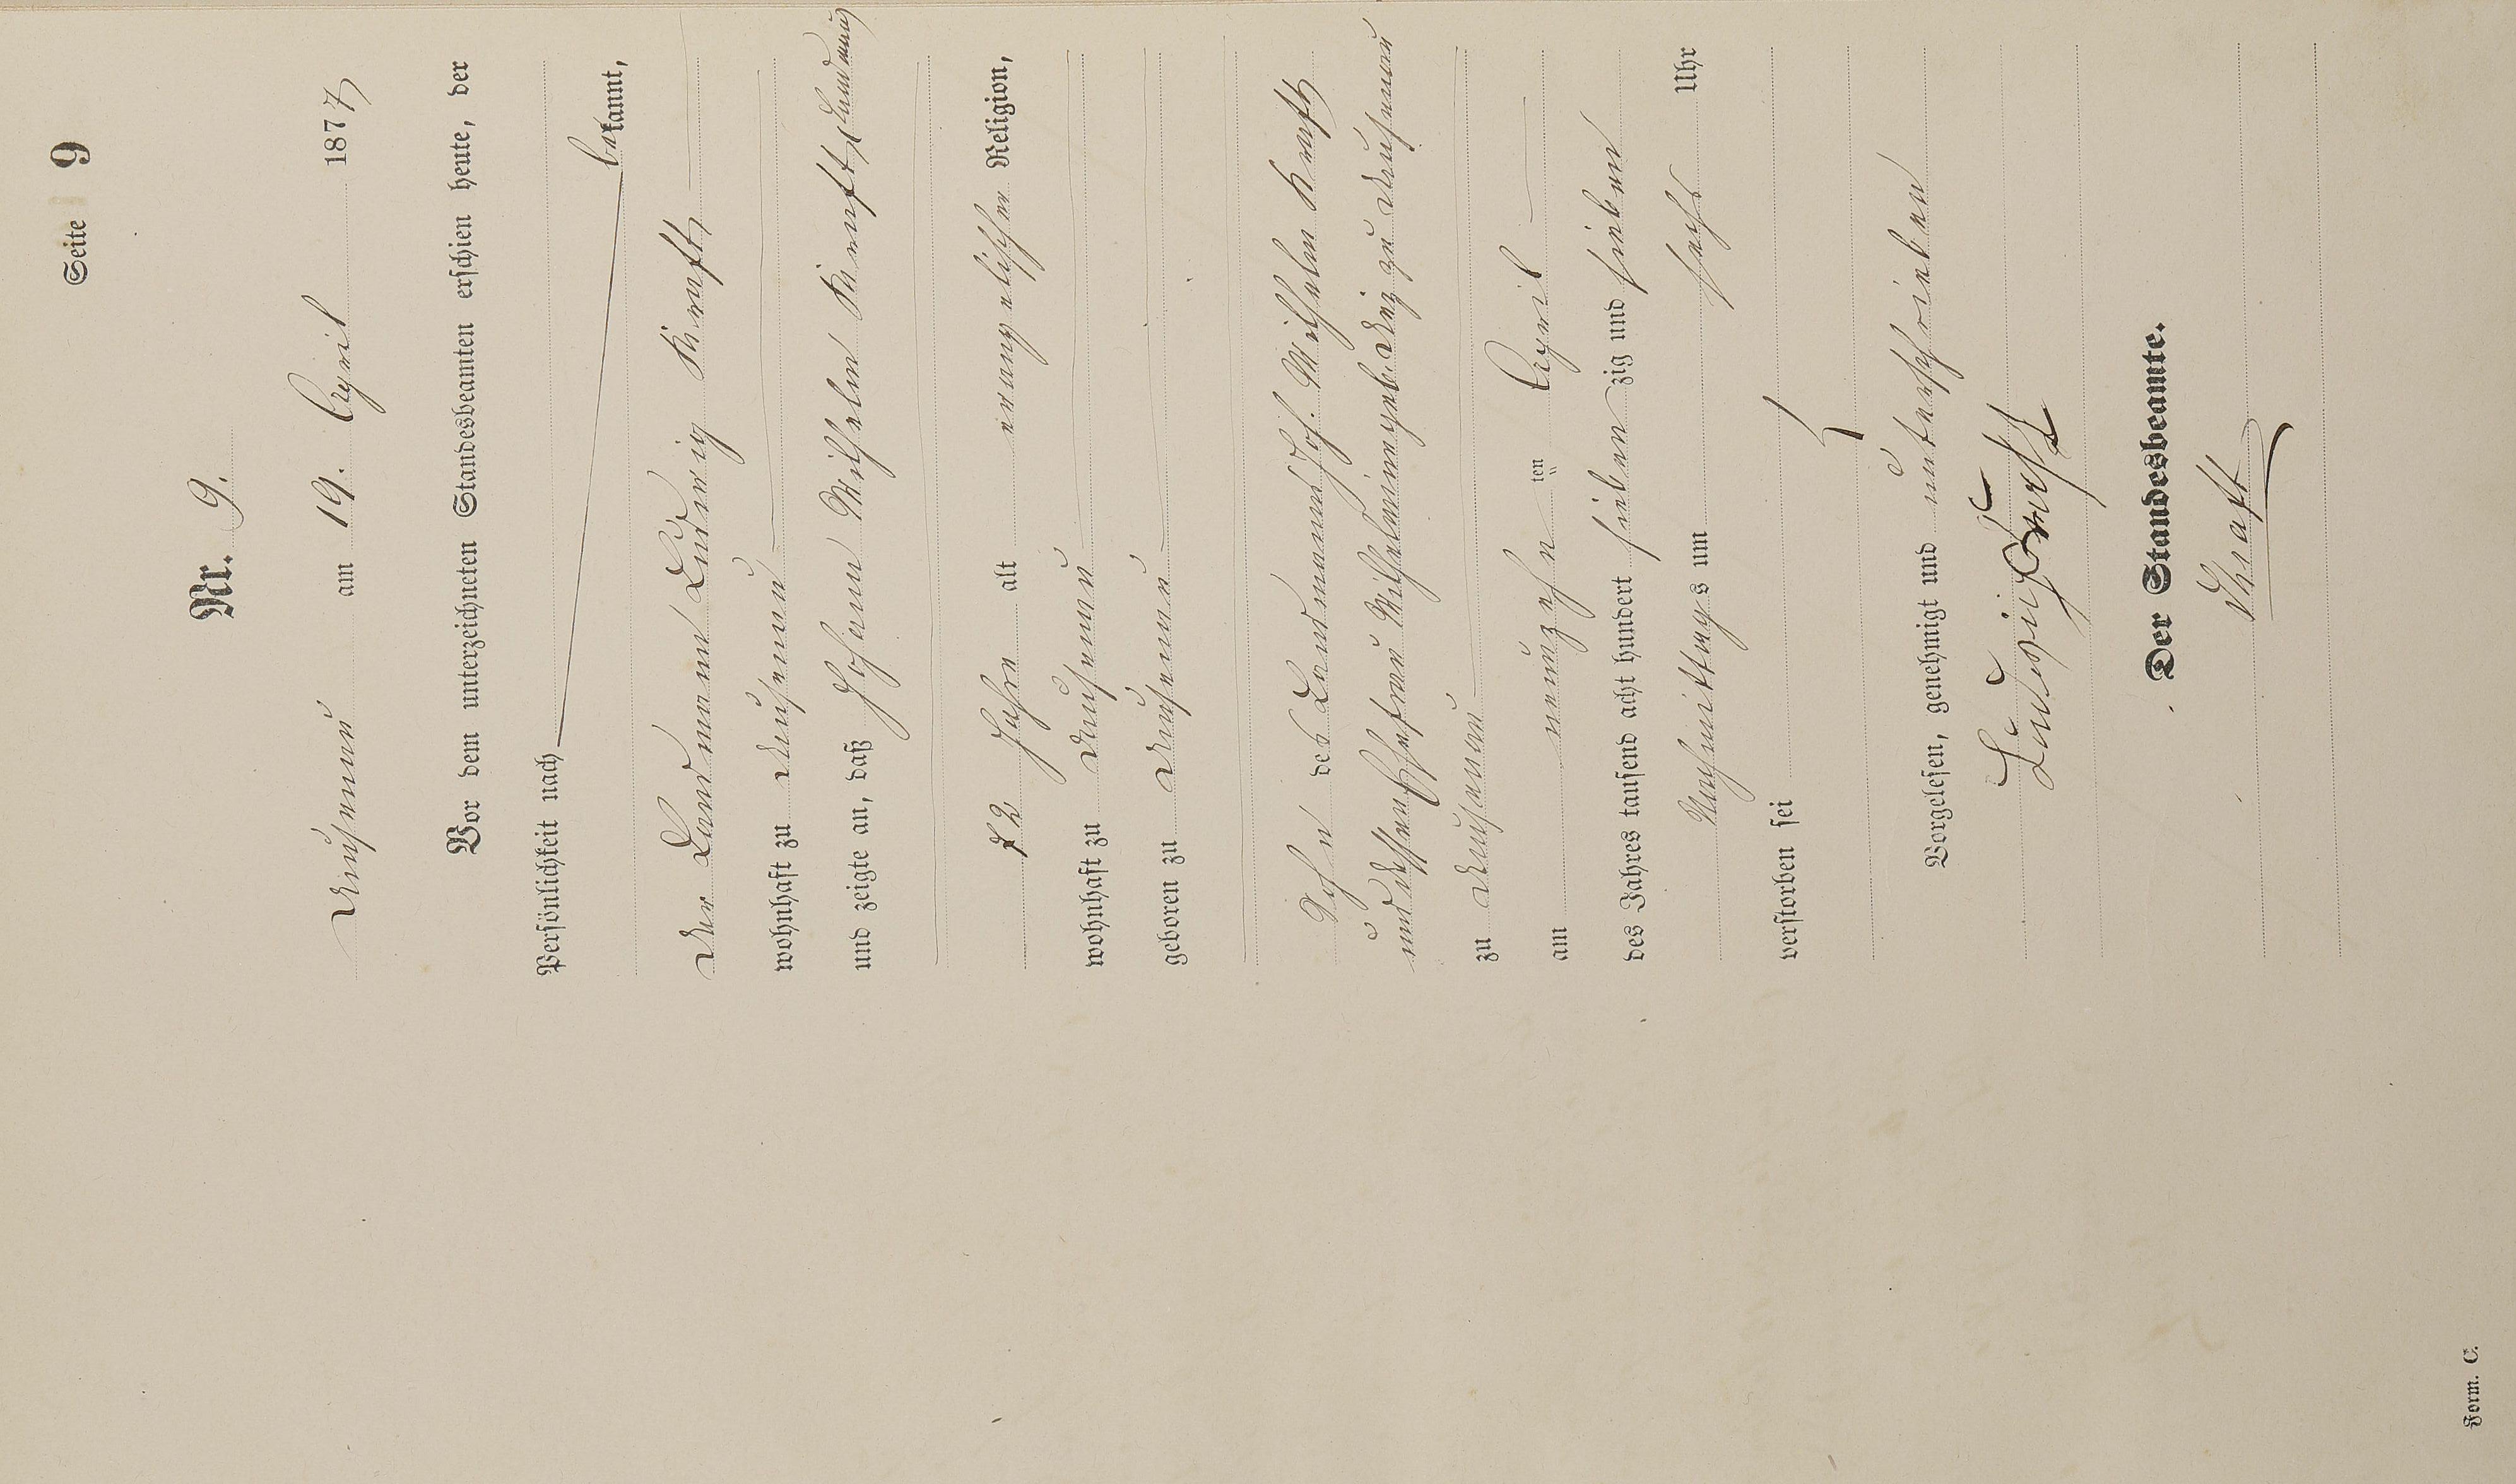 Seite 9
Nr. 9.
Dausenau am 19. April 1877
Vor dem unterzeichneten Standesbeamten erschien heute, der
Persönlichkeit nach
bekannt,
der Landmann Ludwig Kraft,
wohnhaft zu Dausenau
und zeigte an, daß Johann Wilhelm Kraft, Landmann,
72 Jahre alt evangelischer Religion,
wohnhaft zu Dausenau
geboren zu Dausenau
Sohn des Landmanns Joh. Wilhelm Kraft,
und dessen Ehefrau Wilhelmine geb. zu Dausenau
zu Dausenau
am neunzehn ten April
des Jahres tausend acht hundert sieben zig und sieben
Nachmittags um sechs Uhr
verstorben sei
Vorgelesen, genehmigt und unterschrieben
Ludwig Kraft
Der Standesbeamte.
Form. C.